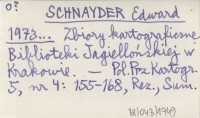 o?
SCHNAYDER Edward
1973... Zbiory kartograficzne
Biblioteki Jagiellońskiej w
Krakowie. — Pol. Prz. Kartogr.
5, nr 4: 155-168, Rez., Sum.